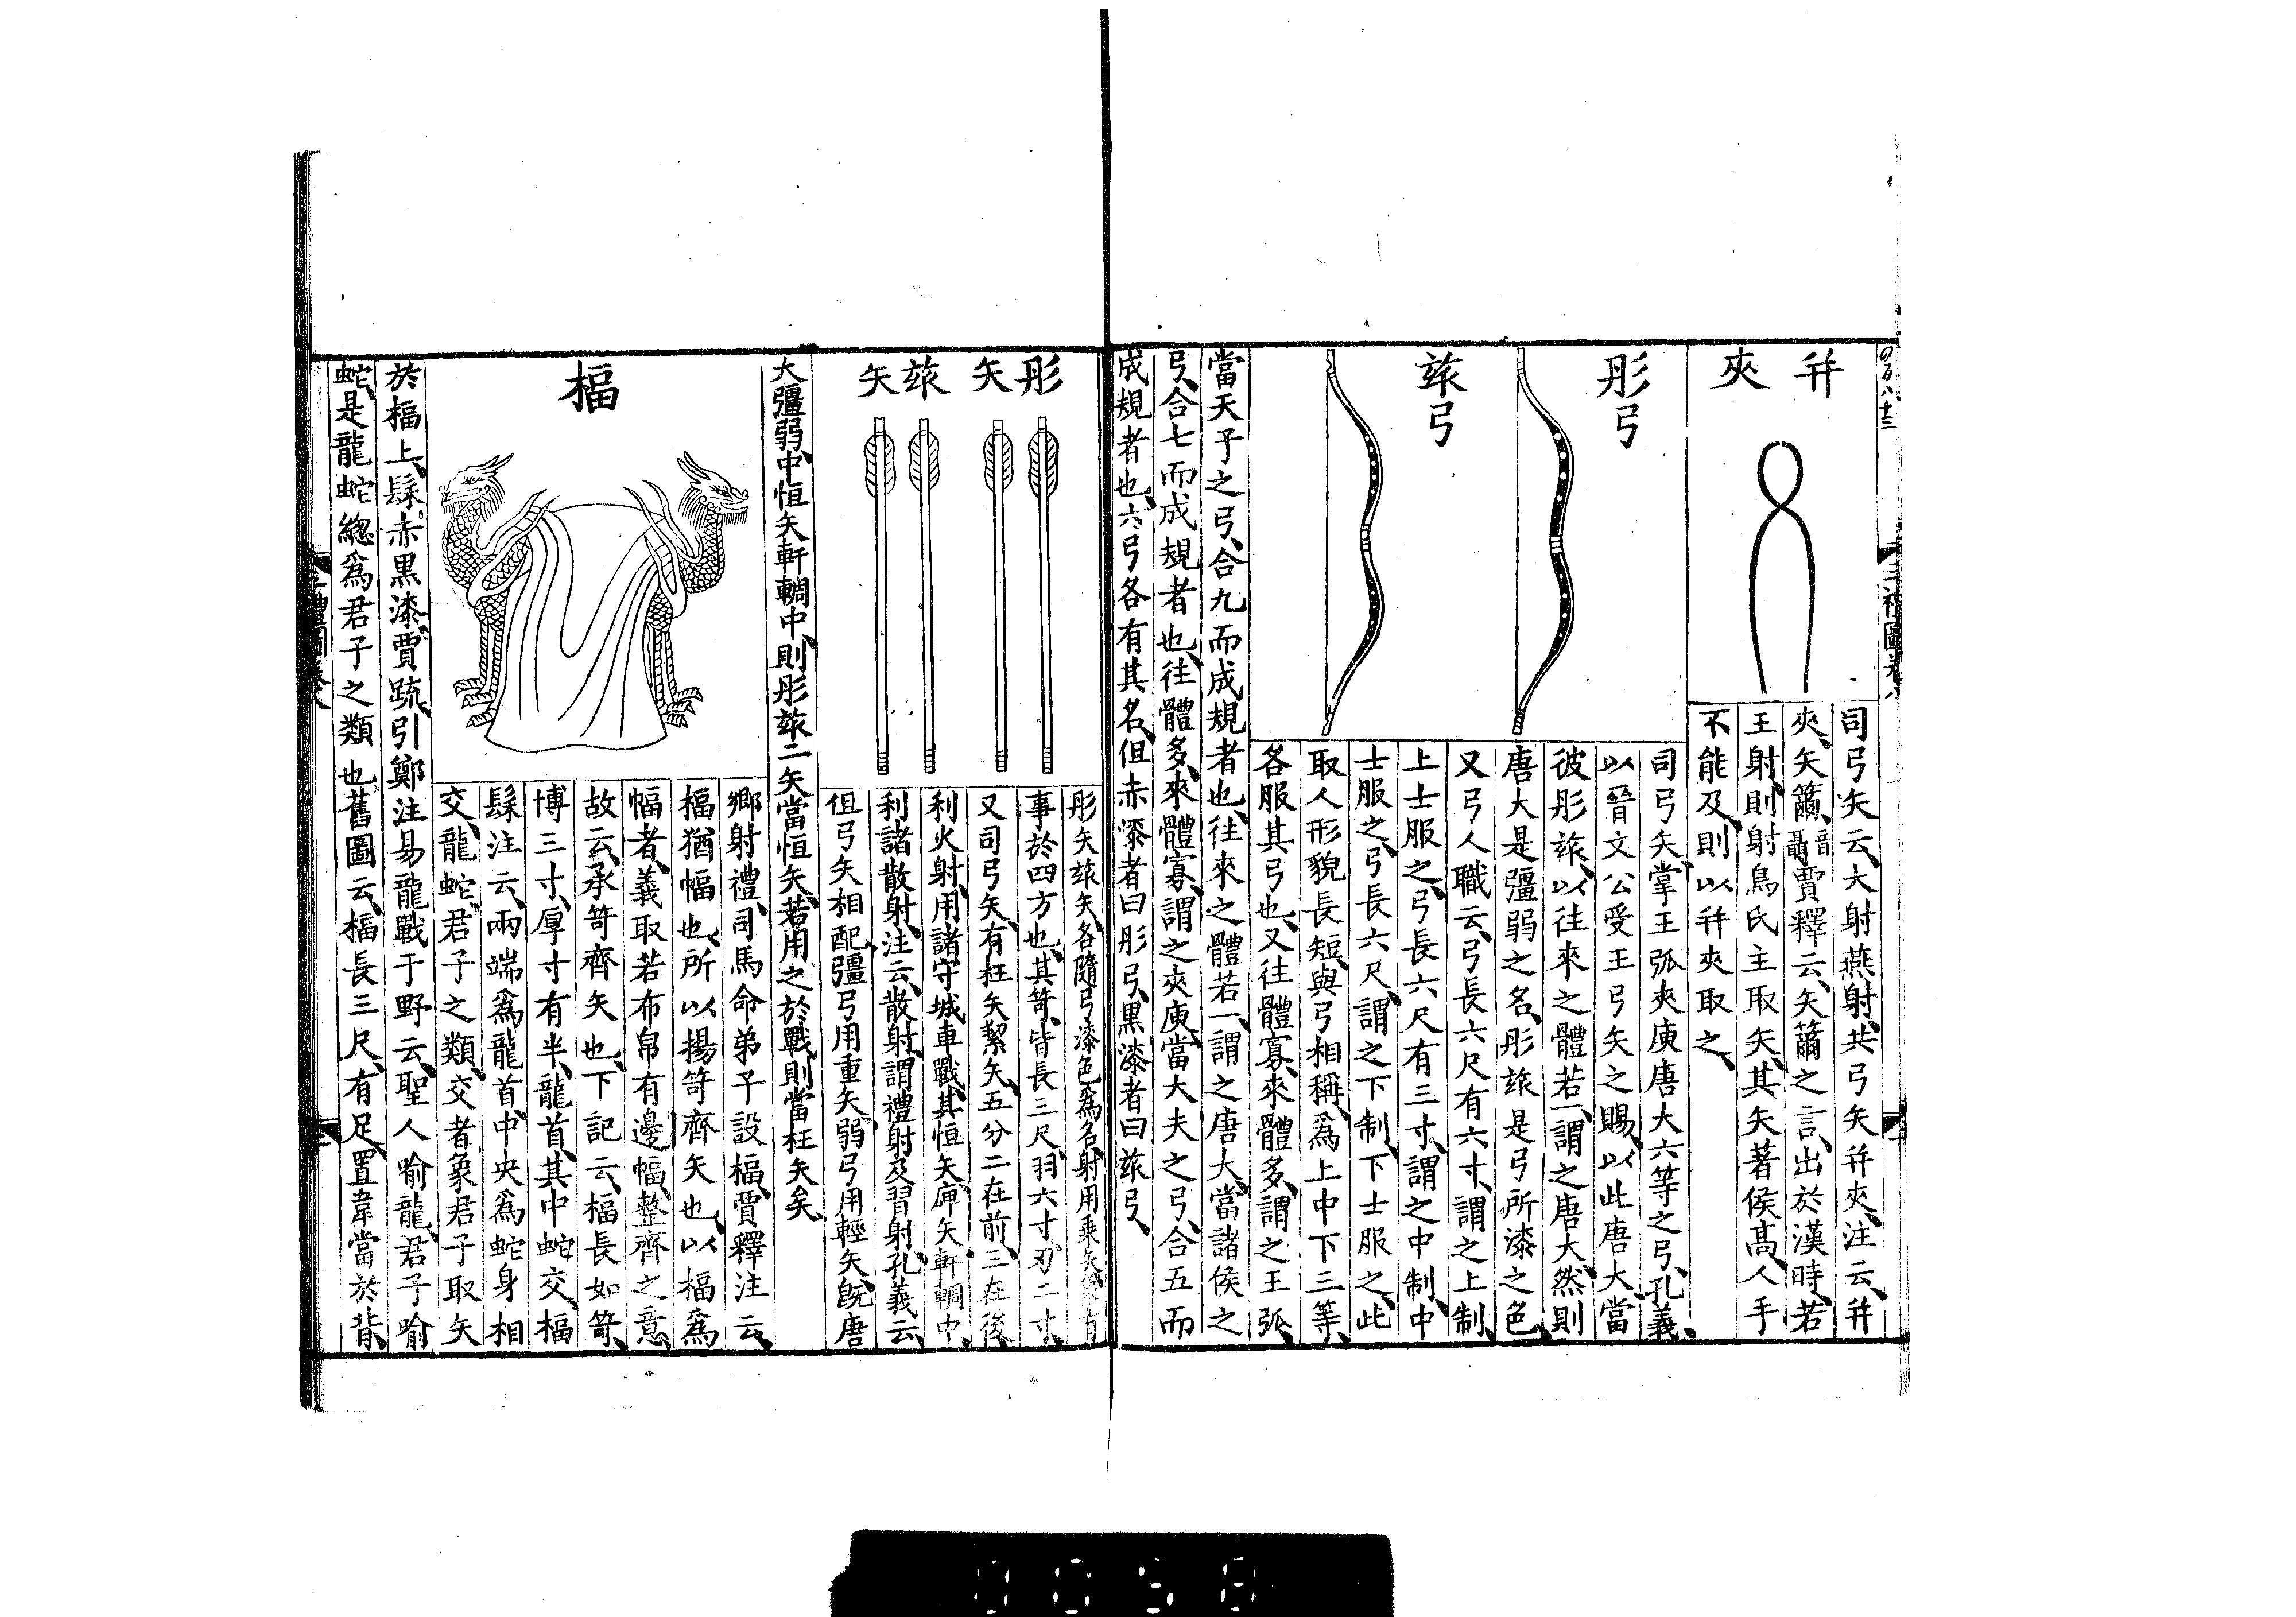 三禮圖卷八
并夾
司弓矢云大射燕射共弓矢并夾注云并
夾矢籋音聶賈釋云矢籋之言出於漢時若
王射則射鳥氏主取矢其矢著侯高人手
不能及則以并夾取之
彤弓
玈弓
司弓矢掌王弧夾庾唐大六等之弓孔義
以晉文公受王弓矢之賜以此唐大當
彼彤玈以往來之體若一謂之唐大然則
唐大是彊弱之名彤玈是弓所漆之色
又弓人職云弓長六尺有六寸謂之上制
上士服之弓長六尺有三寸謂之中制中
士服之弓長六尺謂之下制下士服之此
取人形貌長短與弓相稱爲上中下三等
各服其弓也又往體寡來體多謂之王弧
當天子之弓合九而成規者也往來之體若一謂之唐大當諸侯之
弓合七而成規者也往體多來體寡謂之夾庾當大夫之弓合五而
成規者也六弓各有其名但赤漆者曰彤弓黒漆者曰玈弓
彤矢
玈矢
彤矢玈矢各隨弓漆色爲名射用乘矢
事於四方也其笴皆長三尺羽六寸刃二寸
又司弓矢有枉矢絜矢五分二在前三在後
利火射用諸守城車戰其恒矢庳矢軒輖中
利諸散射注云散射謂禮射及習射孔義云
但弓矢相配彊弓用重矢弱弓用輕矢旣唐
大彊弱中恒矢軒輖中則彤玈二矢當恒矢若用之於戰則當枉矢矣
楅
鄉射禮司馬命弟子設楅賈釋注云
楅猶幅也所以揚笴齊矢也以楅爲
幅者義取若布帛有邊幅整齊之意
故云承笴齊矢也下記云楅長如笴
博三寸厚寸有半龍首其中蛇交楅
髹注云兩端爲龍首中央爲蛇身相
交龍蛇君子之類交者象君子取矢
於楅上髹赤黒漆賈疏引鄭注易龍戰于野云聖人喻龍君子喻
蛇是龍蛇總爲君子之類也舊圖云楅長三尺有足置韋當於背
三禮圖卷八
0058